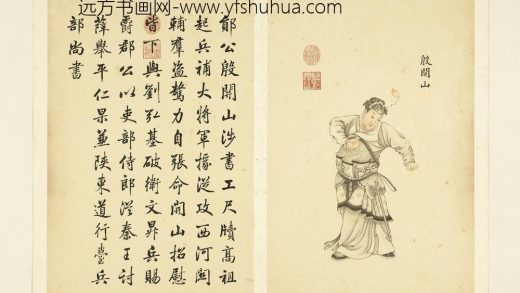 远方书画网-www.yfshuhua.com
殷開山
鄖公殷開山涉書工尺牘高祖
起兵補大將軍掾從攻西河關
輔羣盜驁力自張命開山招慰
皆下與劉弘基破衛文昇兵賜
爵郡公以吏部侍郎從秦王討
薛舉平仁果兼陝東道行臺兵
部尚書